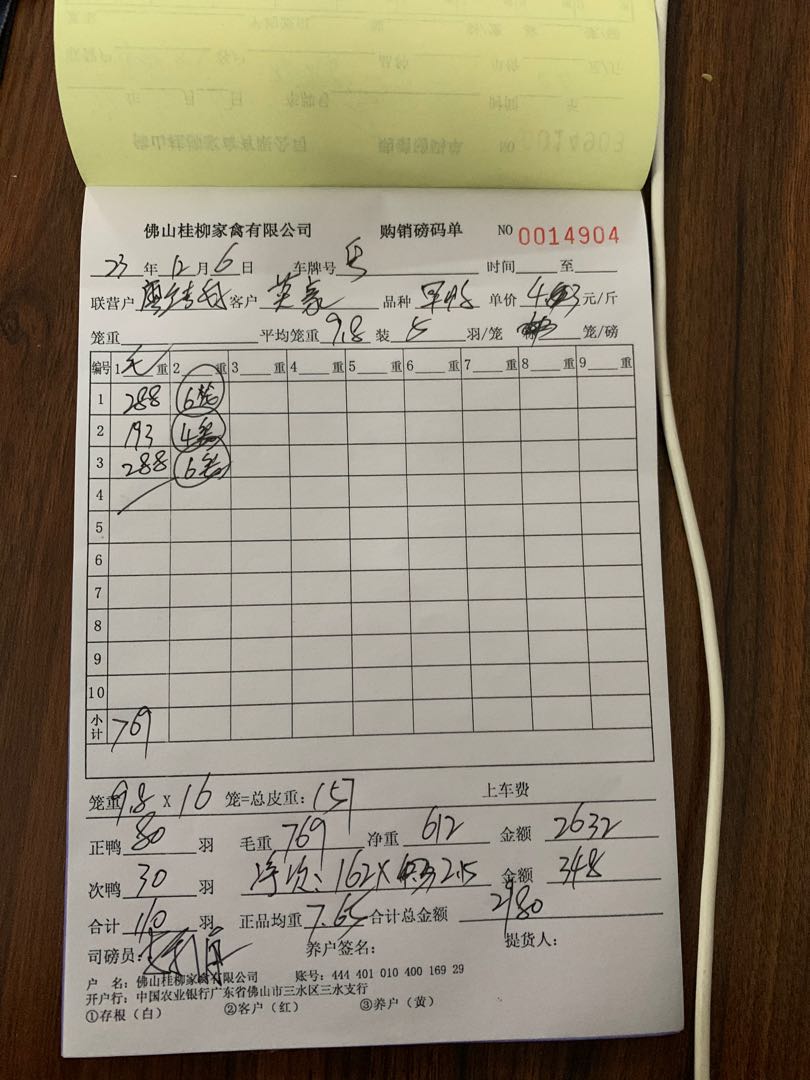 佛山桂柳家禽有限公司 购销磅码单 NO 0014904
23 年 12 月 6 日 车牌号 时间 至
联营户 客户 英豪 品种 单价 元/斤
笼重 平均笼重 9.8 装 5 羽/笼 笼/磅
编号 1 毛 重 2 重 3 重 4 重 5 重 6 重 7 重 8 重 9 重
1 288 6笼
2 193 4笼
3 288 6笼
4
5
6
7
8
9
10
小计 769
笼重 9.8 X 16 笼=总皮重: 157 上车费
正鸭 80 羽 毛重 769 净重 612 金额 2632
次鸭 30 羽 净次: 162X 2.15 金额 348
合计 110 羽 正品均重 7.65 合计总金额 2980
司磅员: 养户签名: 提货人:
户 名: 佛山桂柳家禽有限公司 账号: 444 401 010 400 169 29
开户行: 中国农业银行广东省佛山市三水区三水支行
①存根(白) ②客户(红) ③养户(黄)